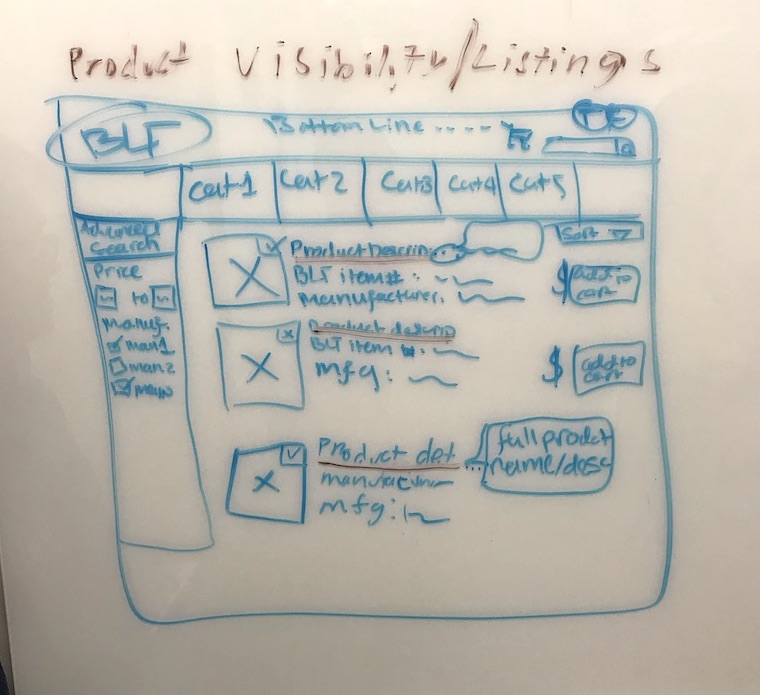 Product Visibility/Listings
BLF
Bottom Line ....
Cat1 Cat2 Cat3 Cat4 Cat5
Advanced
Search
Sort
Price
to
Manuf.
man1
man2
Product Descrip..
BLF item#:
manufacturer:
$ add to
cart
Product descrip
BLF item #:
mfg:
$ add to
cart
Product det. ...
mfg:
full prodct
name/desc